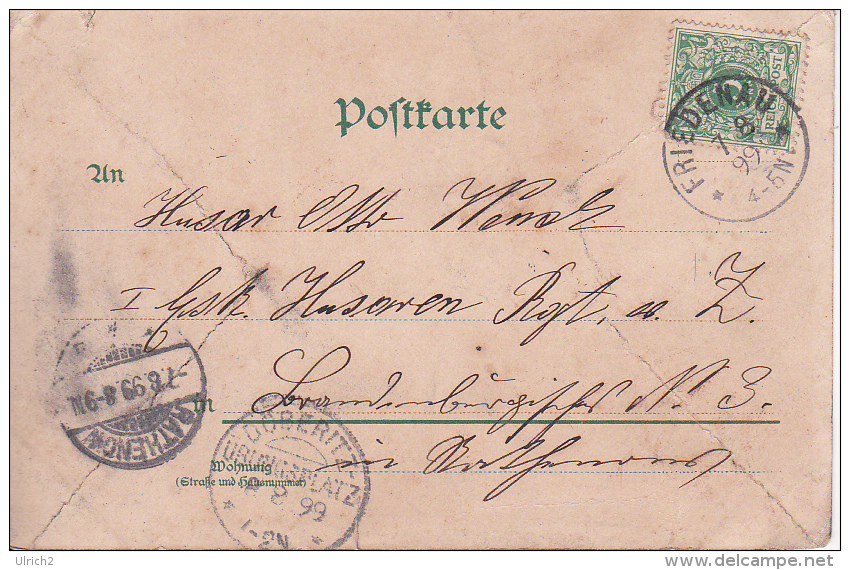 Postkarte
REICHSPOST
FRIEDENAU
7 8
99
4-5N
An
Husar Otto Wenck
I Esk. Husaren Rgt. v. Z.
in Brandenburgisches N. 3.
in Rathenow
RATHENOW
-7.8.99.8-9N.
DÖBERITZ-
ÜBUNGSPLATZ
8 99
1-2N
Wohnung
(Straße und Hausnummer)
Ulrich2
delcampe.net